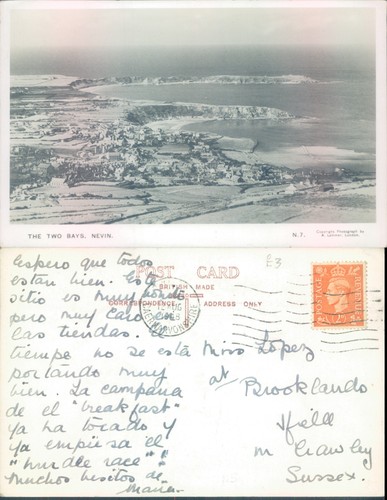 THE TWO BAYS, NEVIN.
N.7.
Copyright Photograph by
London.
£3
POST CARD
BRITISH MADE
CORRESPONDENCE
ADDRESS ONLY
POSTAGE REVENUE
Espero que todos
estan bien. Este
sitio es muy
pero muy caro en
las tiendas. El
tiempo no se está
portando muy
bien. La campana
de el "breakfast"
ya ha tocado y
ya empiesa el
"hurdle race"!
Muchos besitos de
Miss Lopez
at Brooklands
Field
Crawley
Sussex.